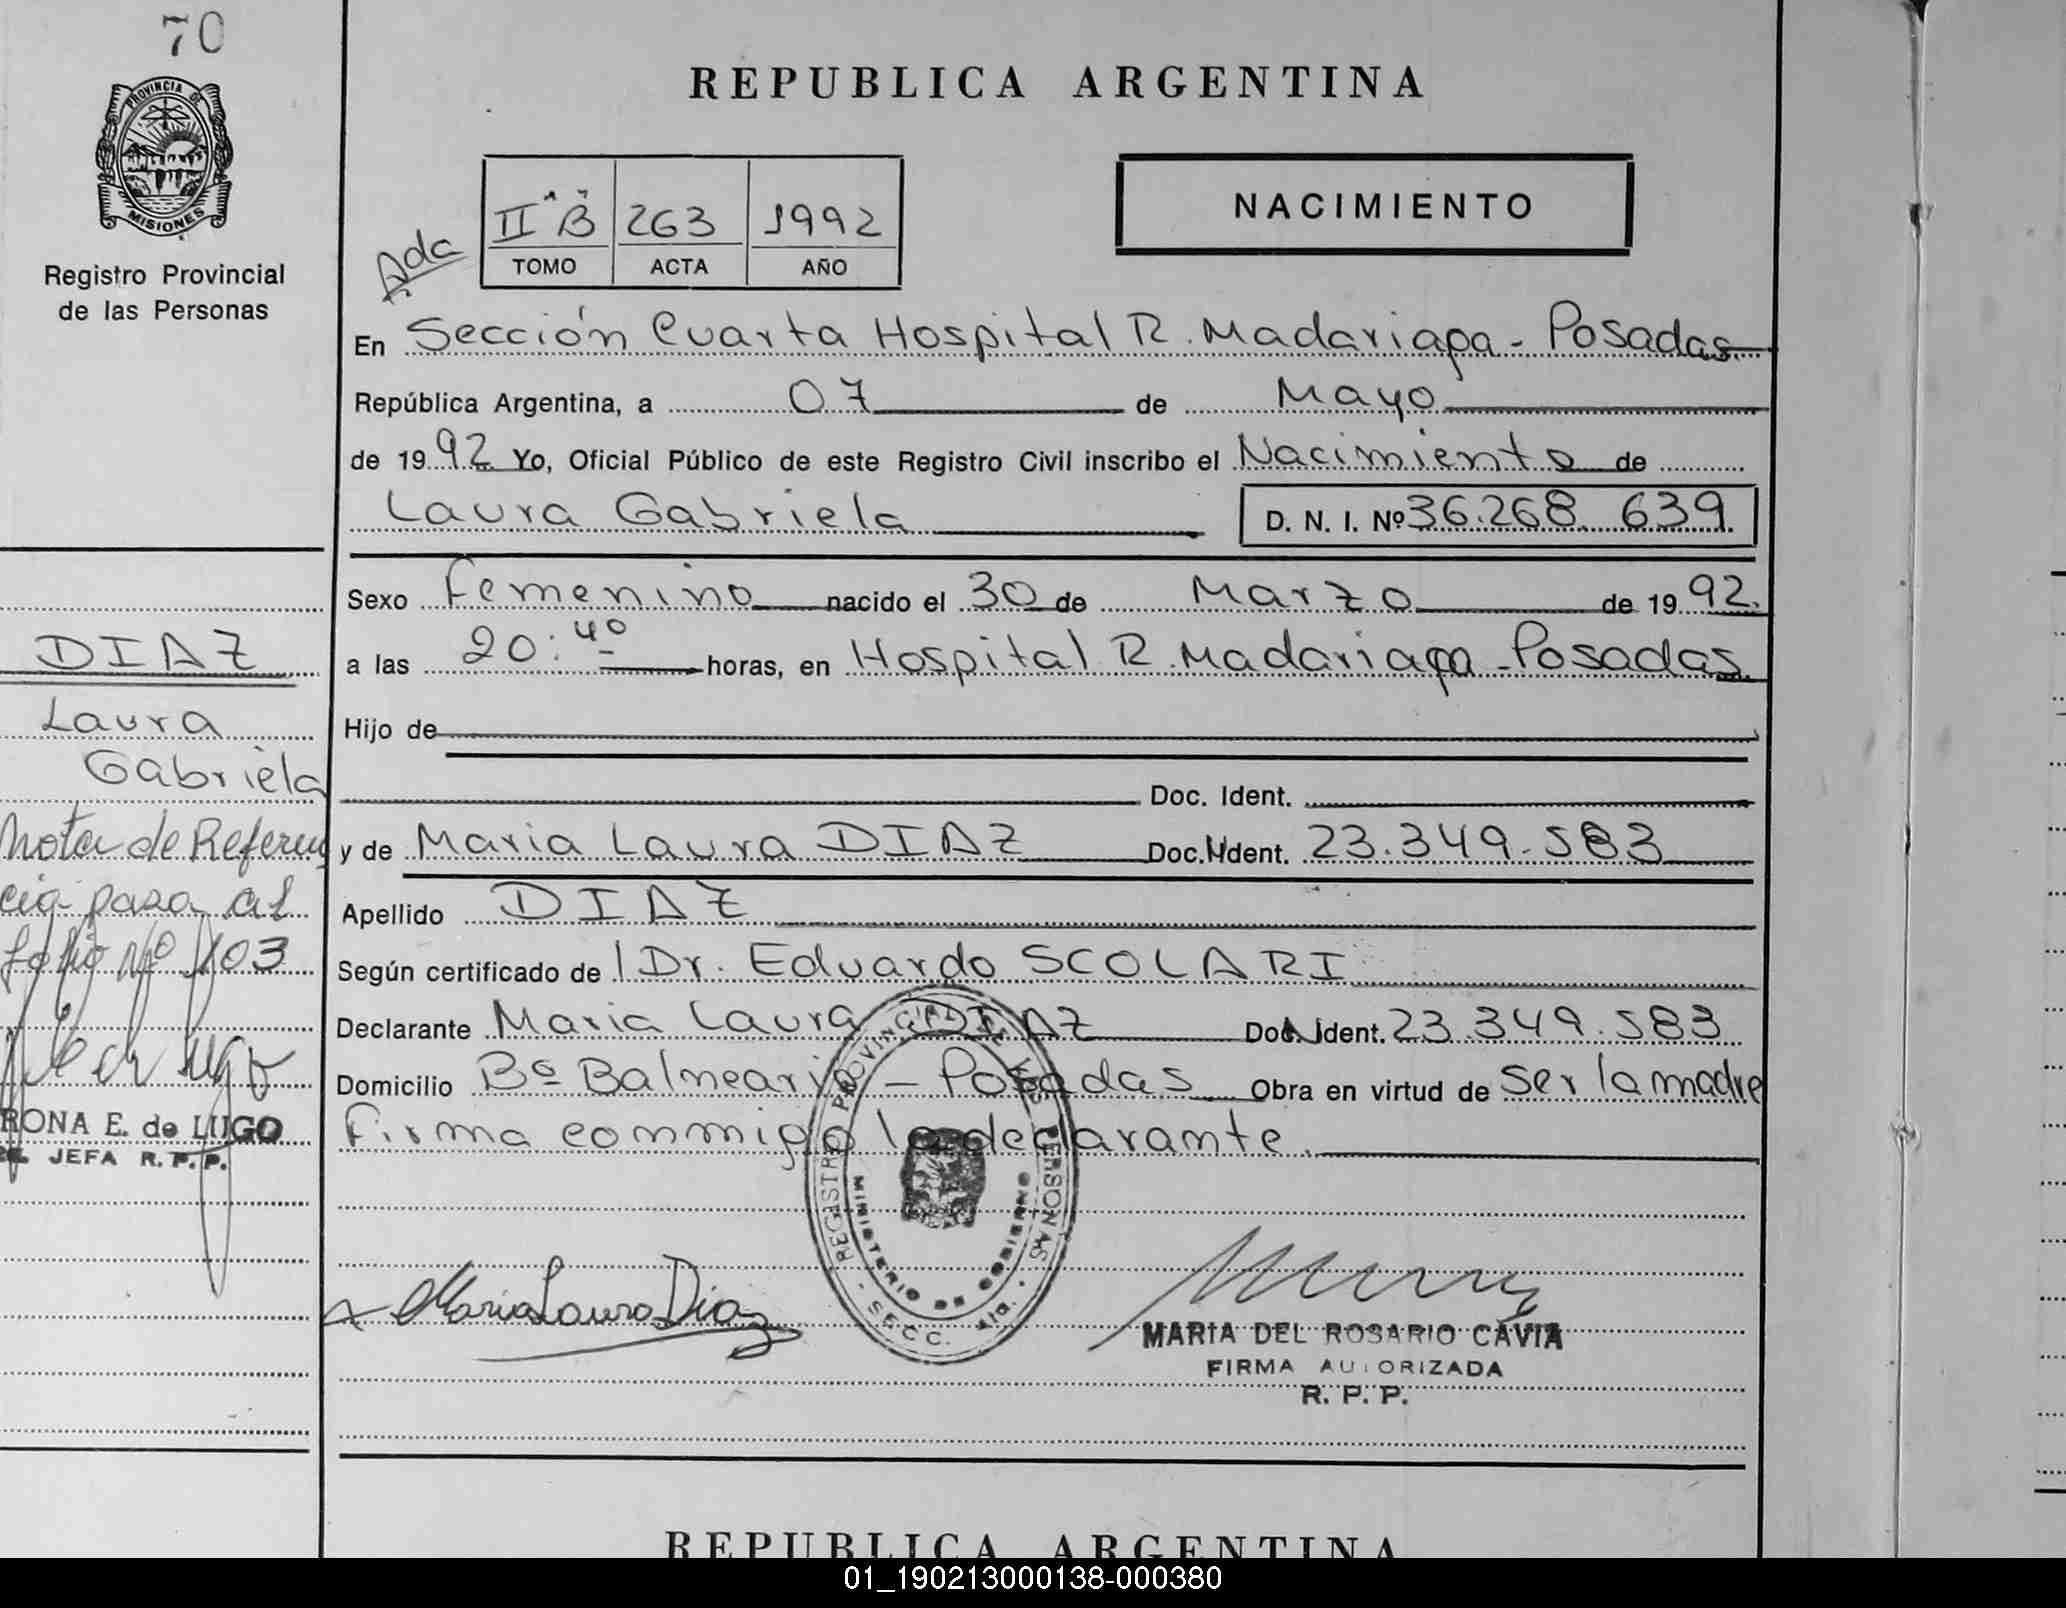 70
PROVINCIA DE
MISIONES
Registro Provincial
de las Personas
REPUBLICA ARGENTINA
NACIMIENTO
II°B 263 1992
TOMO ACTA AÑO
Ada
En Sección Cuarta Hospital R. Madariaga - Posadas
República Argentina, a 07 de Mayo
de 1992 Yo, Oficial Público de este Registro Civil inscribo el Nacimiento de
Laura Gabriela D. N. I. Nº 36.268.639
Sexo Femenino nacido el 30 de Marzo de 1992.
a las 20:40 horas, en Hospital R. Madariaga - Posadas
Hijo de
Doc. Ident.
y de Maria Laura DIAZ Doc. Ident. 23.349.583
Apellido DIAZ
Según certificado de Dr. Eduardo SCOLARI
Declarante Maria Laura DIAZ Doc. Ident. 23.349.583
Domicilio Bº Balneario - Posadas Obra en virtud de Ser la madre
Firma conmigo la declarante.
DIAZ
Laura
Gabriela
Nota de Referen
cia pasa al
folio Nº 103
RONA E. de LUGO
JEFA R. P. P.
REGISTRO PROVINCIAL DE LAS PERSONAS
MINISTERIO DE GOBIERNO
SECC. 4ta.
Maria Laura Diaz
MARIA DEL ROSARIO CAVIA
FIRMA AUTORIZADA
R. P. P.
REPUBLICA ARGENTINA
01_190213000138-000380